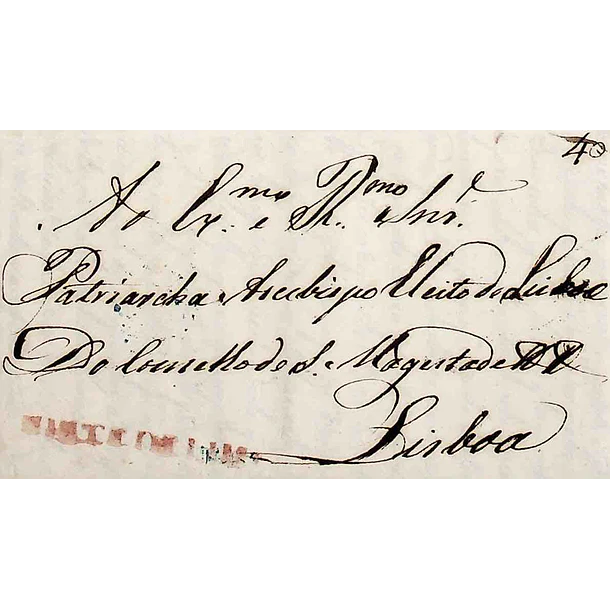 40
Ao Ex.mo e R.mo Snr.
Patriarcha Arcebispo Eleito de
Do Conselho de S. Magestade
Lisboa